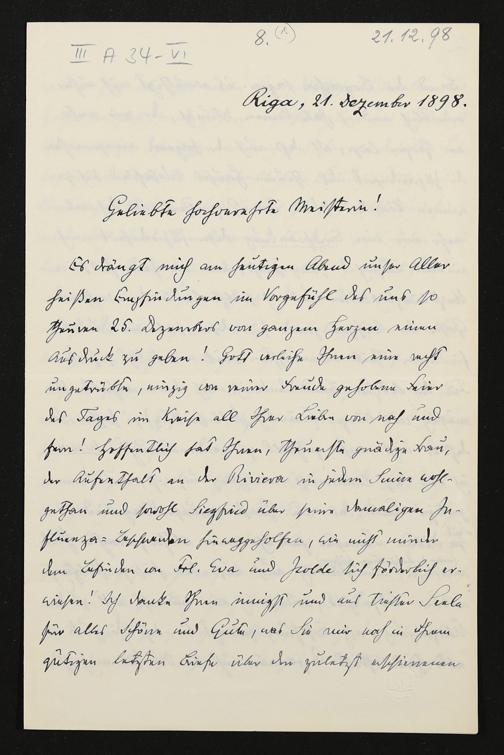 III A 34-VI
8. (1)
21.12.98
Riga, 21. Dezember 1898.
Geliebte hochverehrte Meisterin!
Es drängt mich am heutigen Abend unser Aller
heißen Empfindungen im Vorgefühl des uns so
theuren 25. Dezembers von ganzem Herzen einen
Ausdruck zu geben! Gott verleihe Ihnen eine recht
ungetrübte, einzig von reiner Freude gehobene Feier
des Tages im Kreise all Ihrer Lieben von nah und
fern! Hoffentlich hat Ihnen, theuerste gnädige Frau,
der Aufenthalt an der Riviera in jedem Sinne wohl-
gethan und sowohl Siegfried über seine damaligen In-
fluenza-Beschwerden hinweggeholfen, wie nicht minder
dem Befinden von Frl. Eva und Isolde sich förderlich er-
wiesen! Ich danke Ihnen innigst und aus tiefster Seele
für alles Schöne und Gute, was Sie mir noch in Ihrem
gütigen letzten Briefe über den zuletzt erschienenen